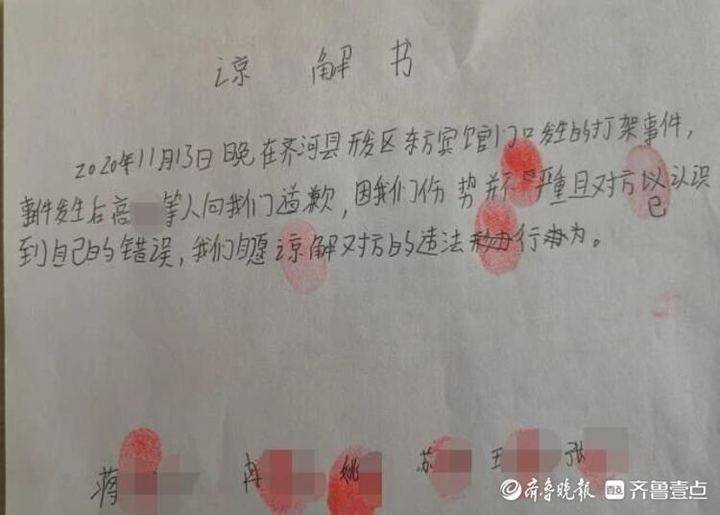 谅解书
2020年11月13日晚在齐河县开发区东方宾馆门口发生的打架事件，
事件发生后高 等人向我们道歉，因我们伤势并不严重且对方以认识
已
到自己的错误，我们自愿谅解对方的违法行为。
蒋 冉 姚 苏 王 张
齐鲁晚报 齐鲁壹点